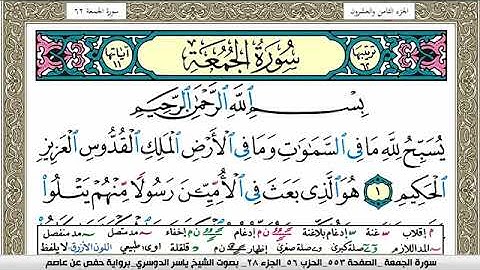 الجزء الثامن والعشرون
سورة الجمعة ٦٢
ترتيبها ٦٢
سُورَةُ الجُمُعَةِ
آياتها ١١
بِسْمِ اللَّهِ الرَّحْمَٰنِ الرَّحِيمِ
يُسَبِّحُ لِلَّهِ مَا فِي السَّمَاوَاتِ وَمَا فِي الْأَرْضِ الْمَلِكِ الْقُدُّوسِ الْعَزِيزِ
الْحَكِيمِ ١ هُوَ الَّذِي بَعَثَ فِي الْأُمِّيِّينَ رَسُولًا مِّنْهُمْ يَتْلُوا
م إقلاب غنة إدغام بلاغنة ن م إدغام إخفاء مد متصل مد منفصل
المد اللازم صلة كبرى صلة صغرى إظهار ن م قلقلة اوى: طبيعي اللون الأزرق: لا يلفظ
سورة الجمعة _الصفحة ٥٥٣_الحزب ٥٦_الجزء ٢٨_ بصوت الشيخ ياسر الدوسري_برواية حفص عن عاصم